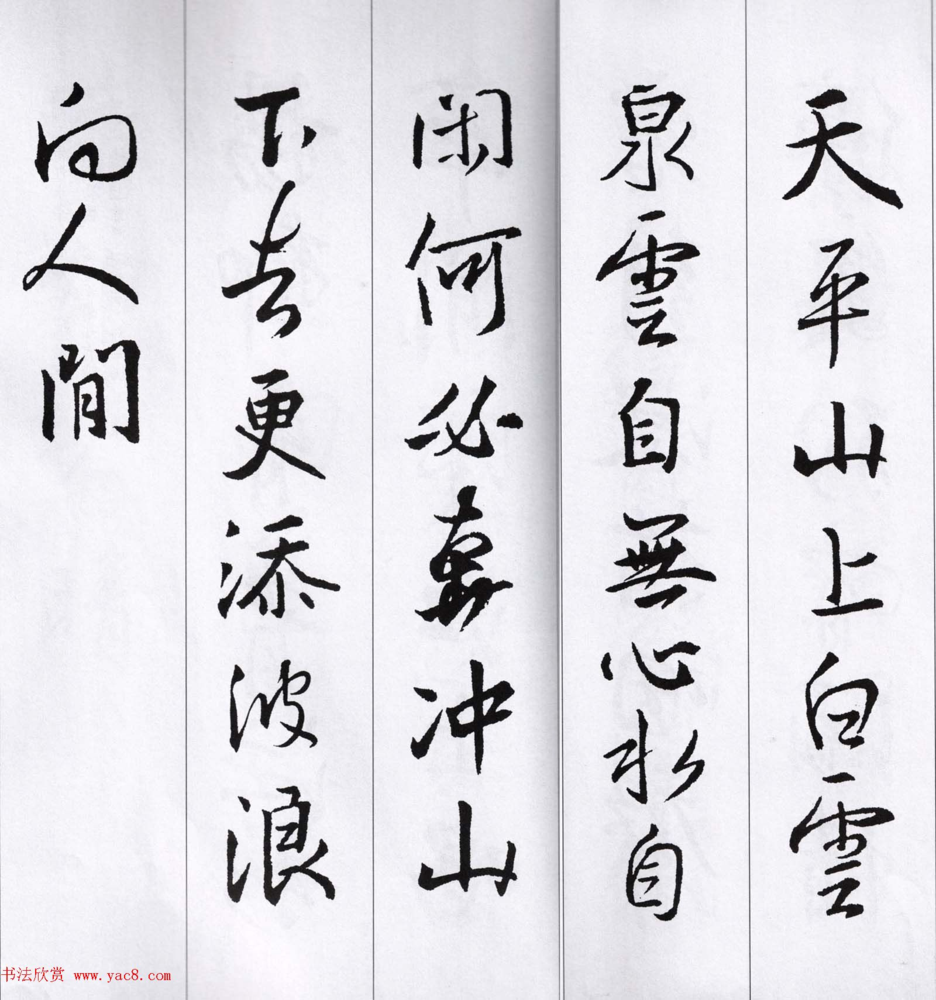 天平山上白雲
泉雲自無心水自
闲何必奔冲山
下去更添波浪
向人間
书法欣赏 www.yac8.com